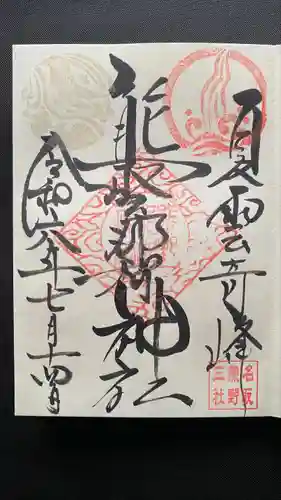 夏雲奇峰
熊野那智神社
令和六年七月十四日
名取
熊野
三社